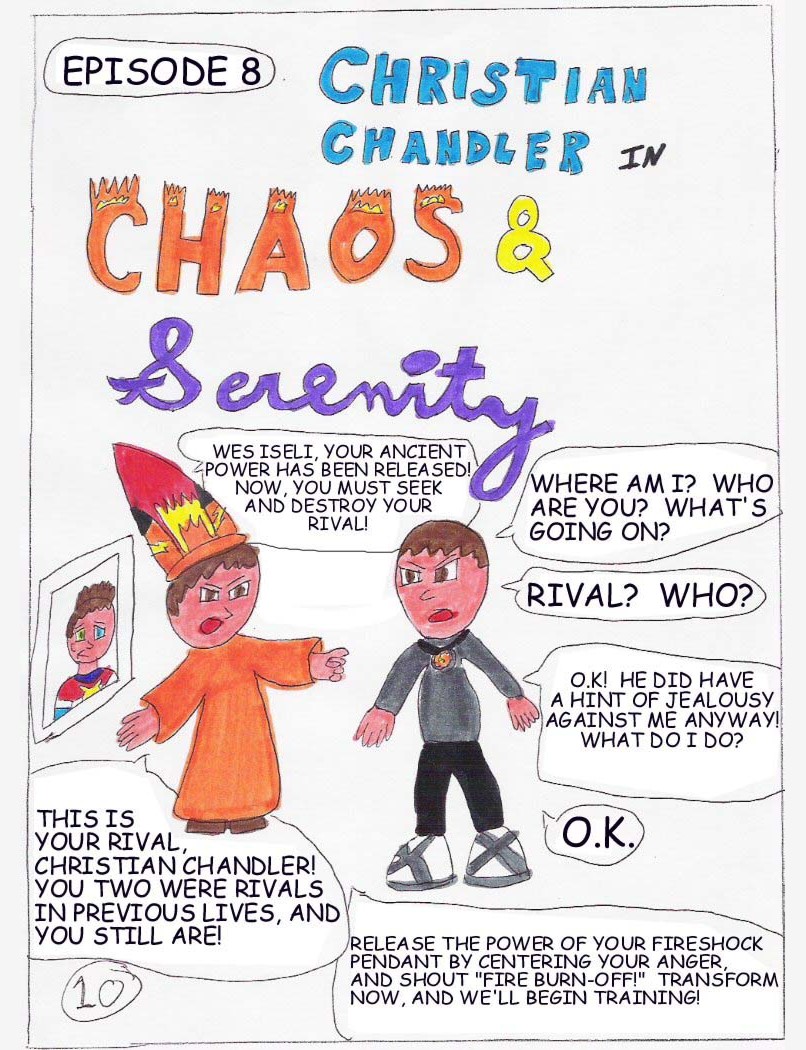 EPISODE 8
CHRISTIAN
CHANDLER IN
CHAOS &
Serenity
WES ISELI, YOUR ANCIENT
POWER HAS BEEN RELEASED!
NOW, YOU MUST SEEK
AND DESTROY YOUR
RIVAL!
WHERE AM I? WHO
ARE YOU? WHAT'S
GOING ON?
RIVAL? WHO?
THIS IS
YOUR RIVAL,
CHRISTIAN CHANDLER!
YOU TWO WERE RIVALS
IN PREVIOUS LIVES, AND
YOU STILL ARE!
O.K! HE DID HAVE
A HINT OF JEALOUSY
AGAINST ME ANYWAY!
WHAT DO I DO?
RELEASE THE POWER OF YOUR FIRESHOCK
PENDANT BY CENTERING YOUR ANGER,
AND SHOUT "FIRE BURN-OFF!" TRANSFORM
NOW, AND WE'LL BEGIN TRAINING!
O.K.
10